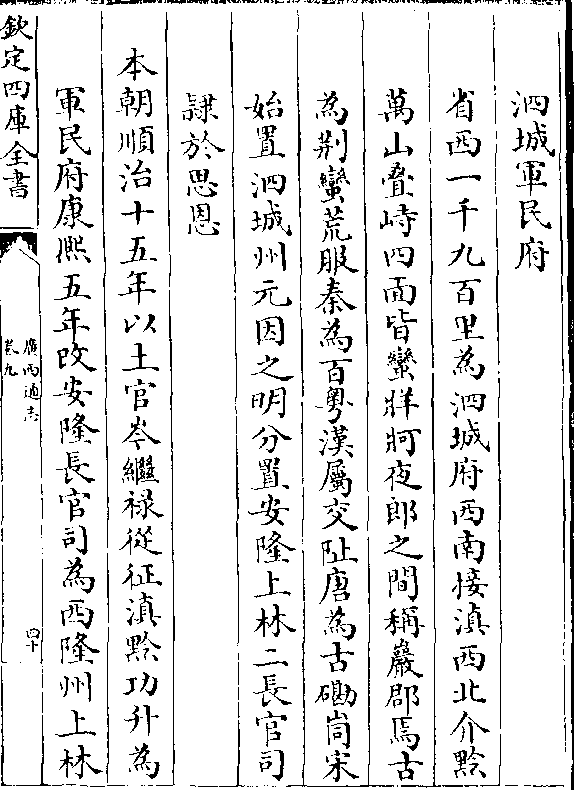 泗城軍民府
省西一千九百里為泗城府西南接滇西北介黔
萬山叠峙四面皆蠻牂牁夜郎之間稱巖郡焉古
為荆蠻荒服秦為百粤漢屬交阯唐為古磡峝宋
始置泗城州元因之明分置安隆上林二長官司
隷於思恩
本朝順治十五年以土官岑繼禄從征滇黔功升為
軍民府康熈五年改安隆長官司為西隆州上林
欽定四庫全書
廣西通志
卷九
四十